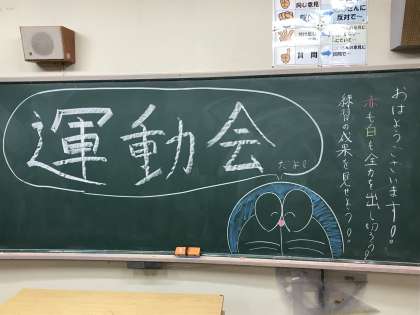 同じ意見
反対で…
質問
運動会
だよ!
おはようございます!!
赤も白も全力を出し切ろう!
練習の成果を見せよう!!